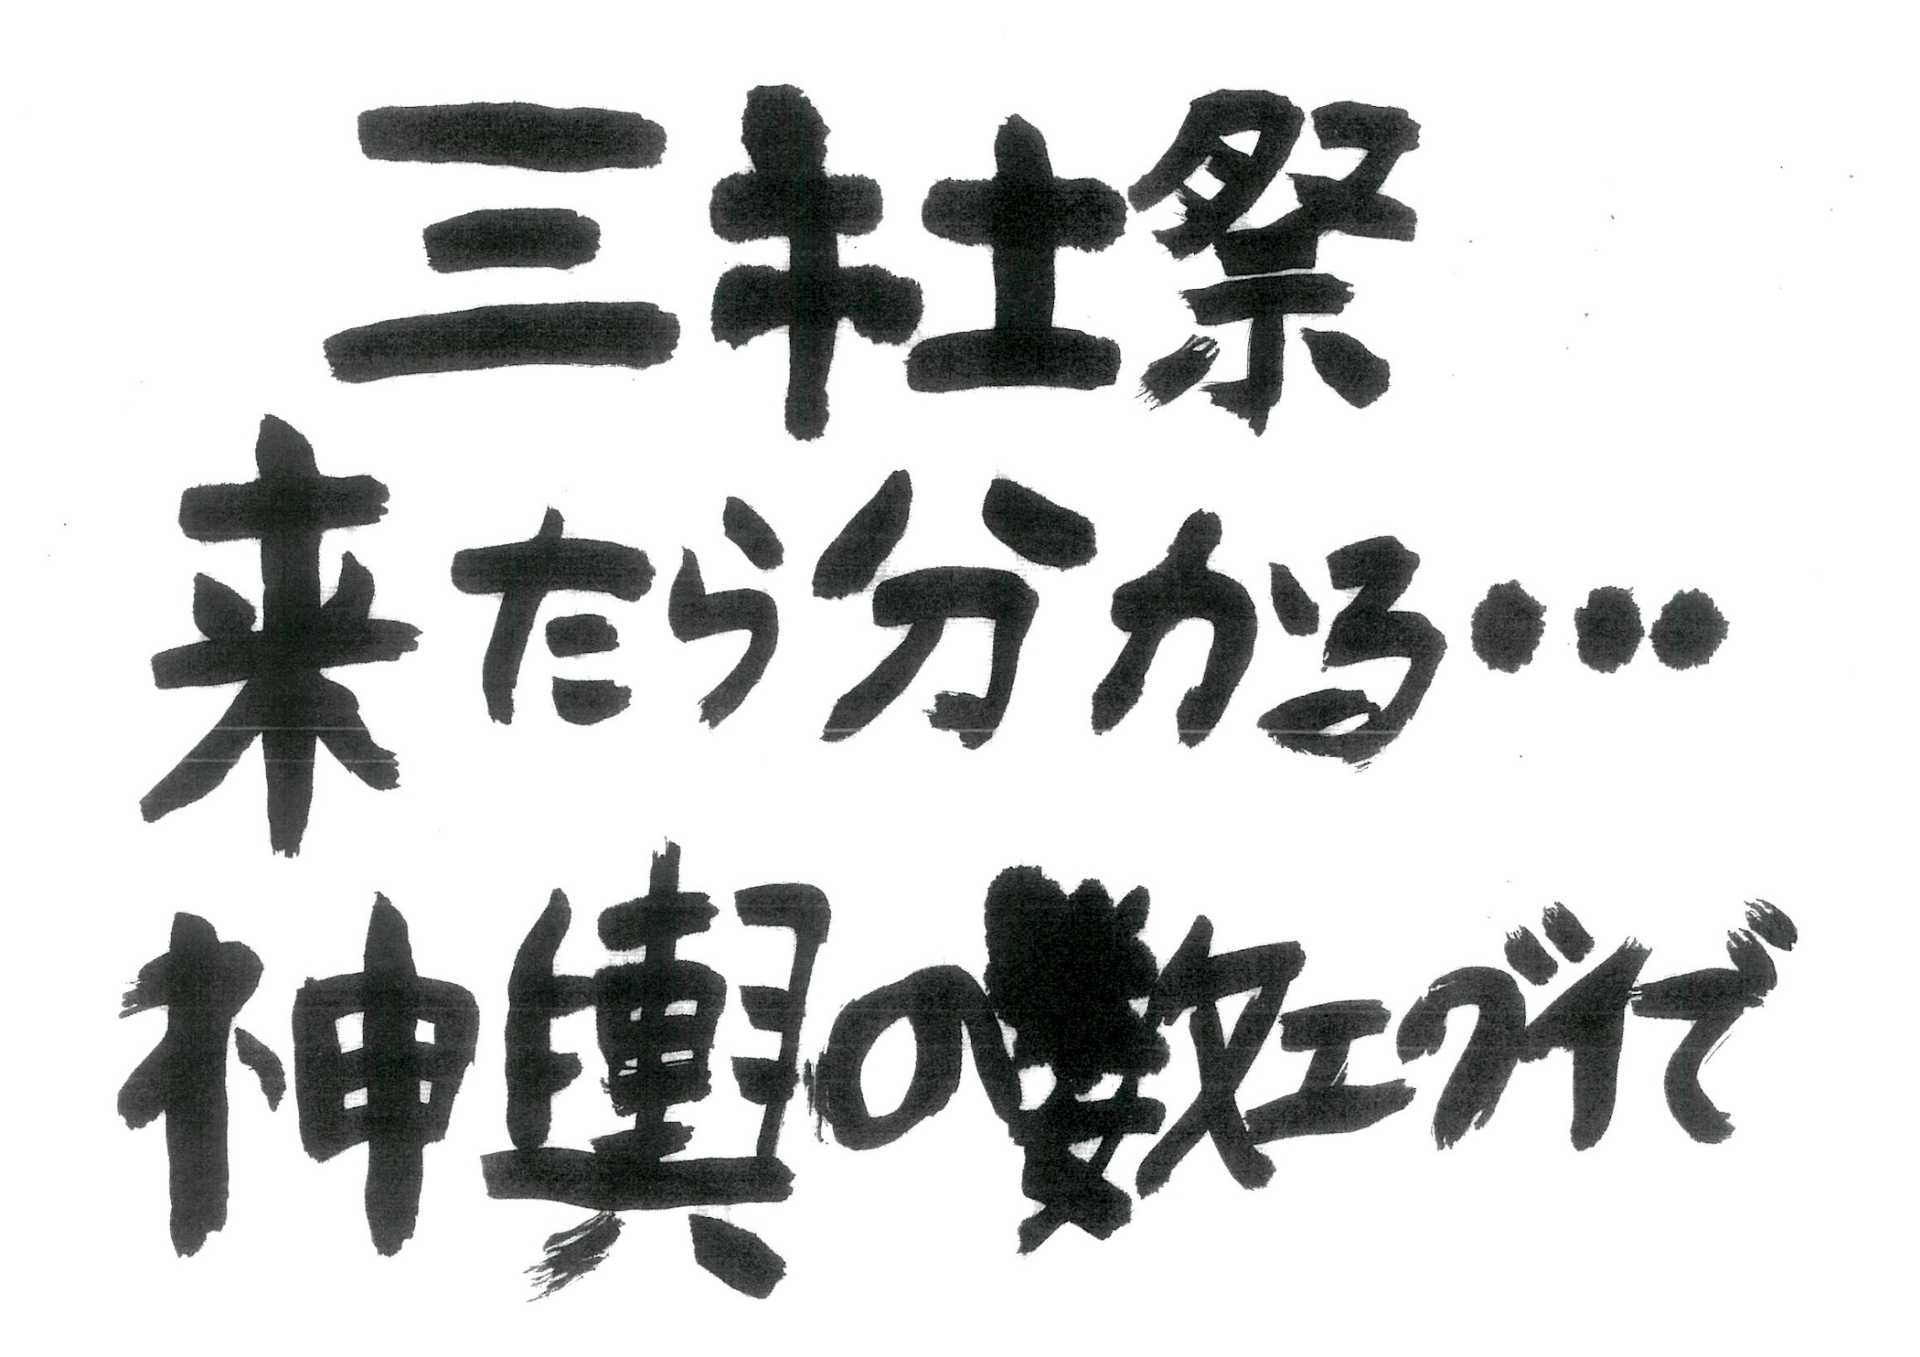 三社祭
来たら分かる・・・
神輿の数エグイで